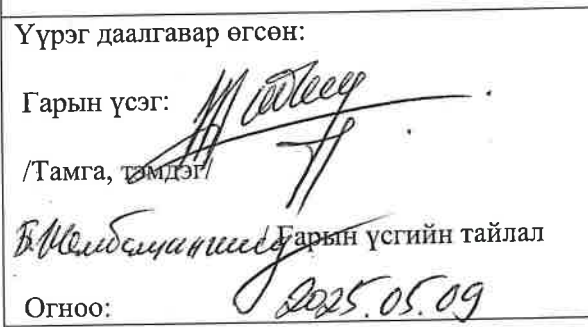 Үүрэг даалгавар өгсөн:
Гарын үсэг:
/Тамга, тэмдэг/
/ Гарын үсгийн тайлал
Огноо: 2025.05.09